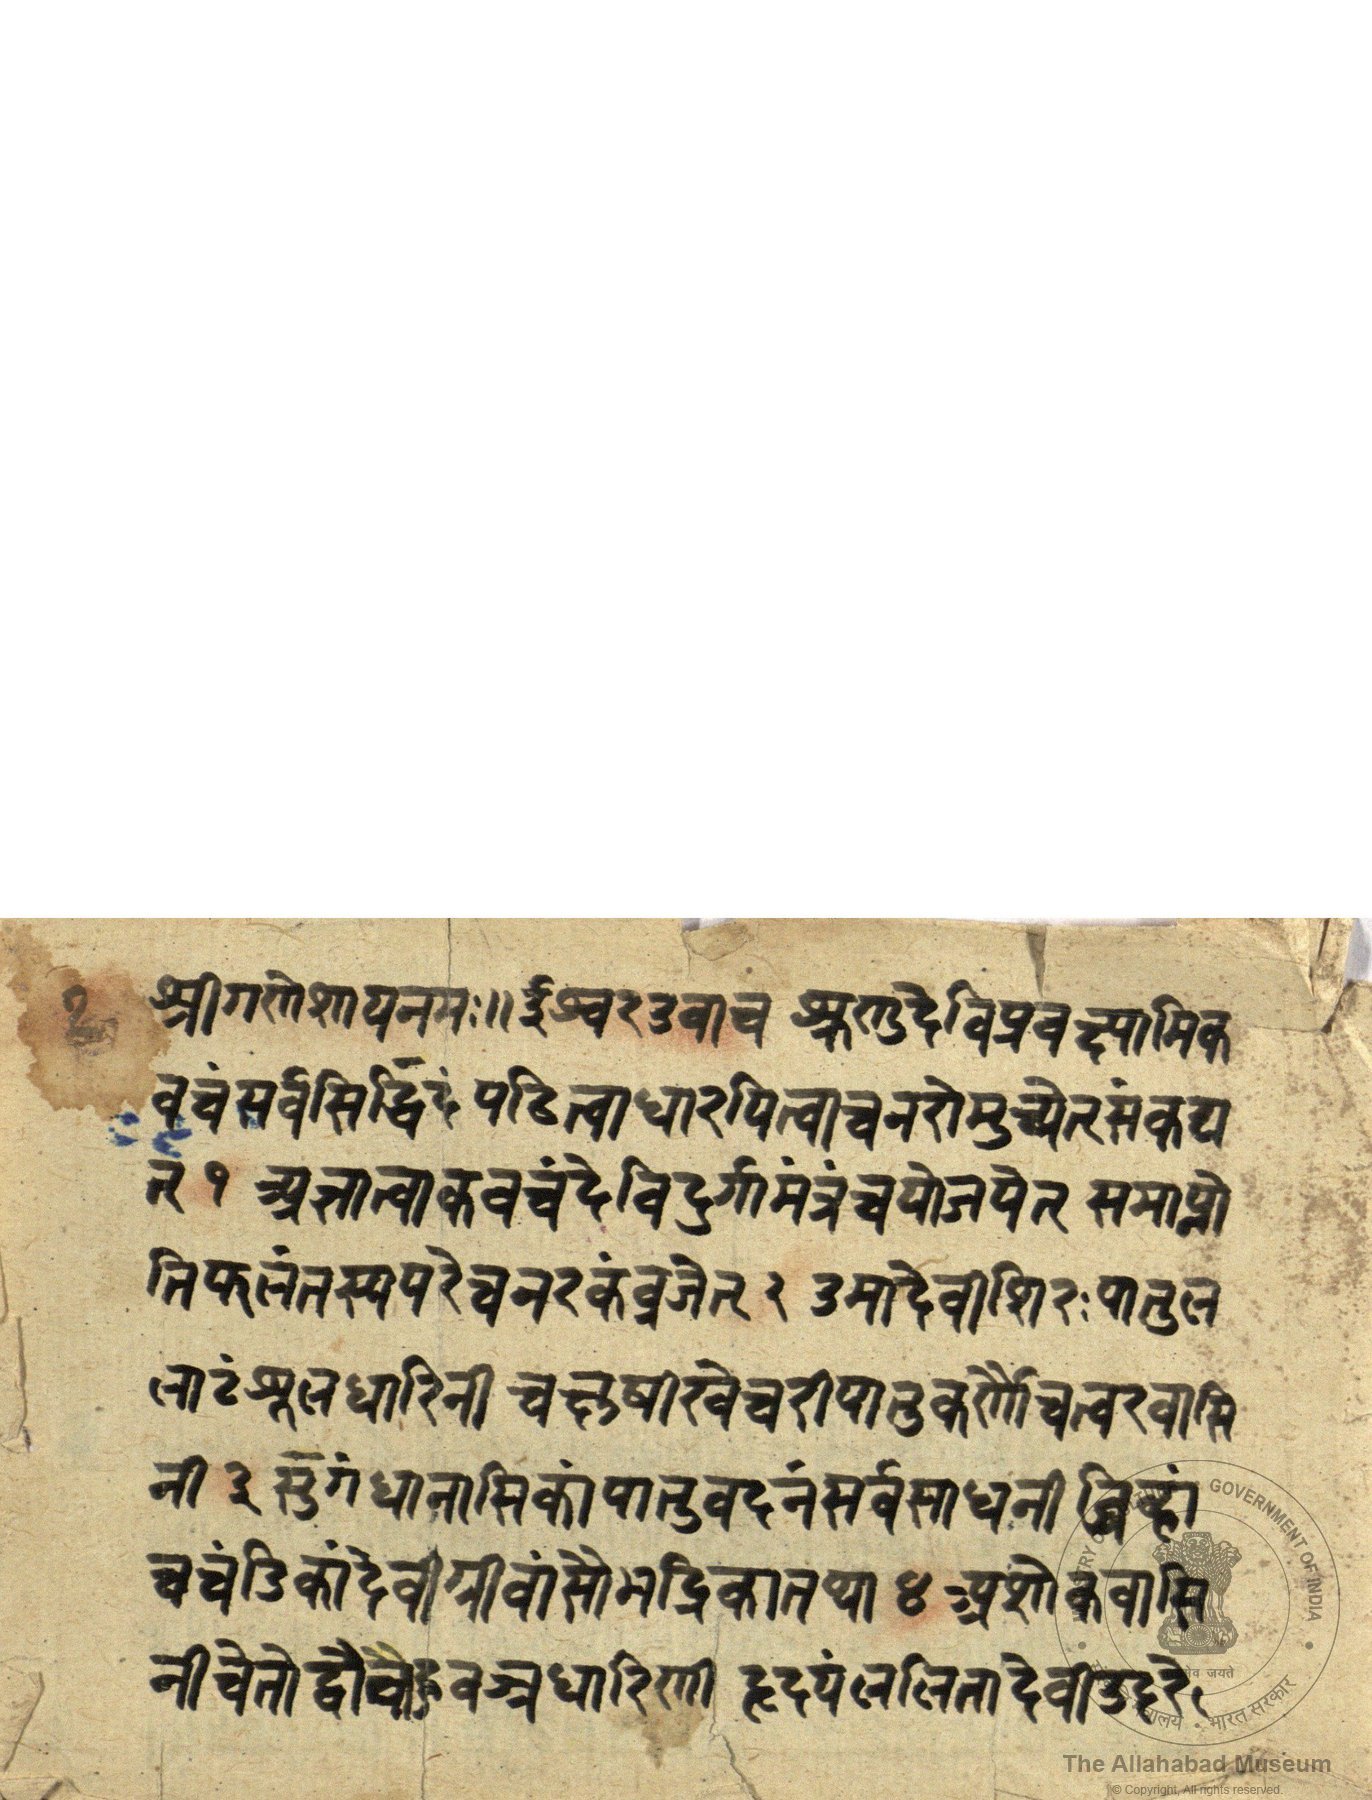 श्रीगणेशायनमः॥ ईश्वरउवाच शृणुदेविप्रवक्ष्यामिक
वचंसर्वसिद्धिदं पठित्वाधारयित्वाचनरोमुच्येतसंकटा
त् १ अज्ञात्वाकवचंदेविदुर्गामंत्रंचयोजपेत् समाप्नो
तिफलंतस्यपरेचनरकंव्रजेत् २ उमादेवीशिरःपातुल
लाटंशूलधारिनी चक्षुषीखेचरीपातुकर्णौचत्वरवासि
नी ३ सुगंधानासिकांपातुवदनंसर्वसाधनी जिव्हां
चचंडिकांदेवीग्रीवांसौभद्रिकातथा ४ अशोकवासि
नीचेतोद्वौ वज्रधारिणी हृदयंललितादेवीउदरे
MINISTRY OF CULTURE GOVERNMENT OF INDIA
सत्यमेव जयते
भारत सरकार
The Allahabad Museum
© Copyright, All rights reserved.